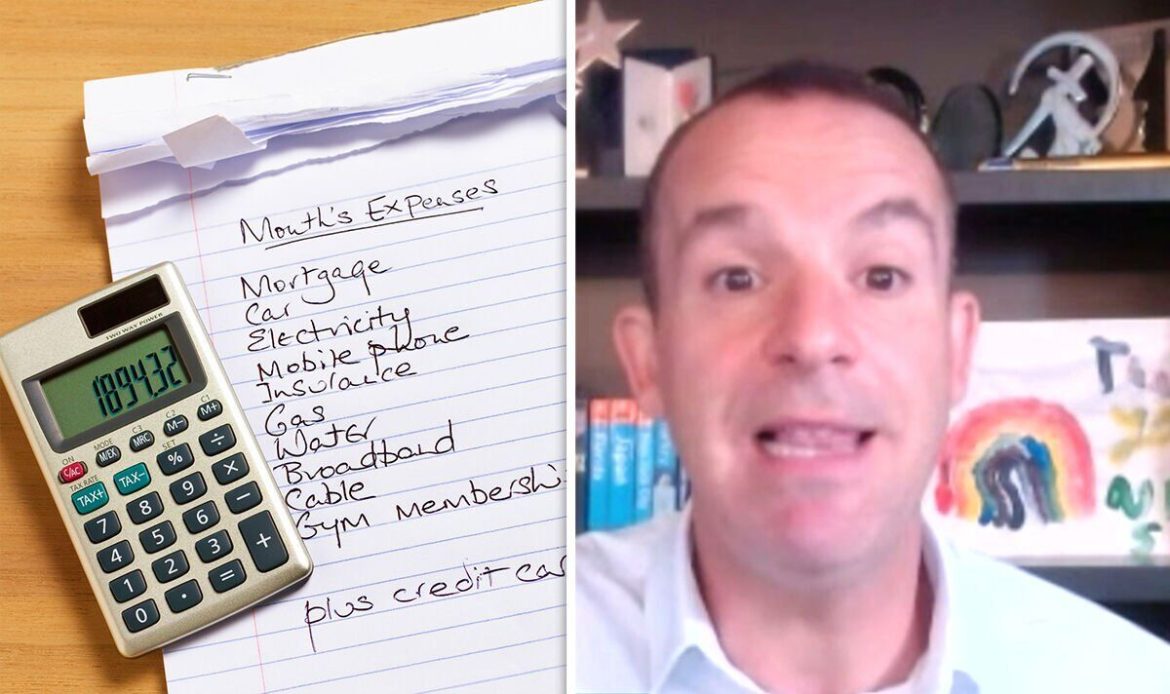 Month's Expenses
Mortgage
Car
Electricity
Mobile phone
Insurance
Gas
Water
Broadband
Cable
Gym membershi
plus credit car
TWO WAY POWER
1894.32
ON
MODE
C3
C2
C1
C/AC
M/EX
MRC
M-
M+
TAX RATE
SET
TAX+
TAX-
%
÷
7
8
9
×
4
5
6
−
1
2
3
+
0
.
=
T
NS